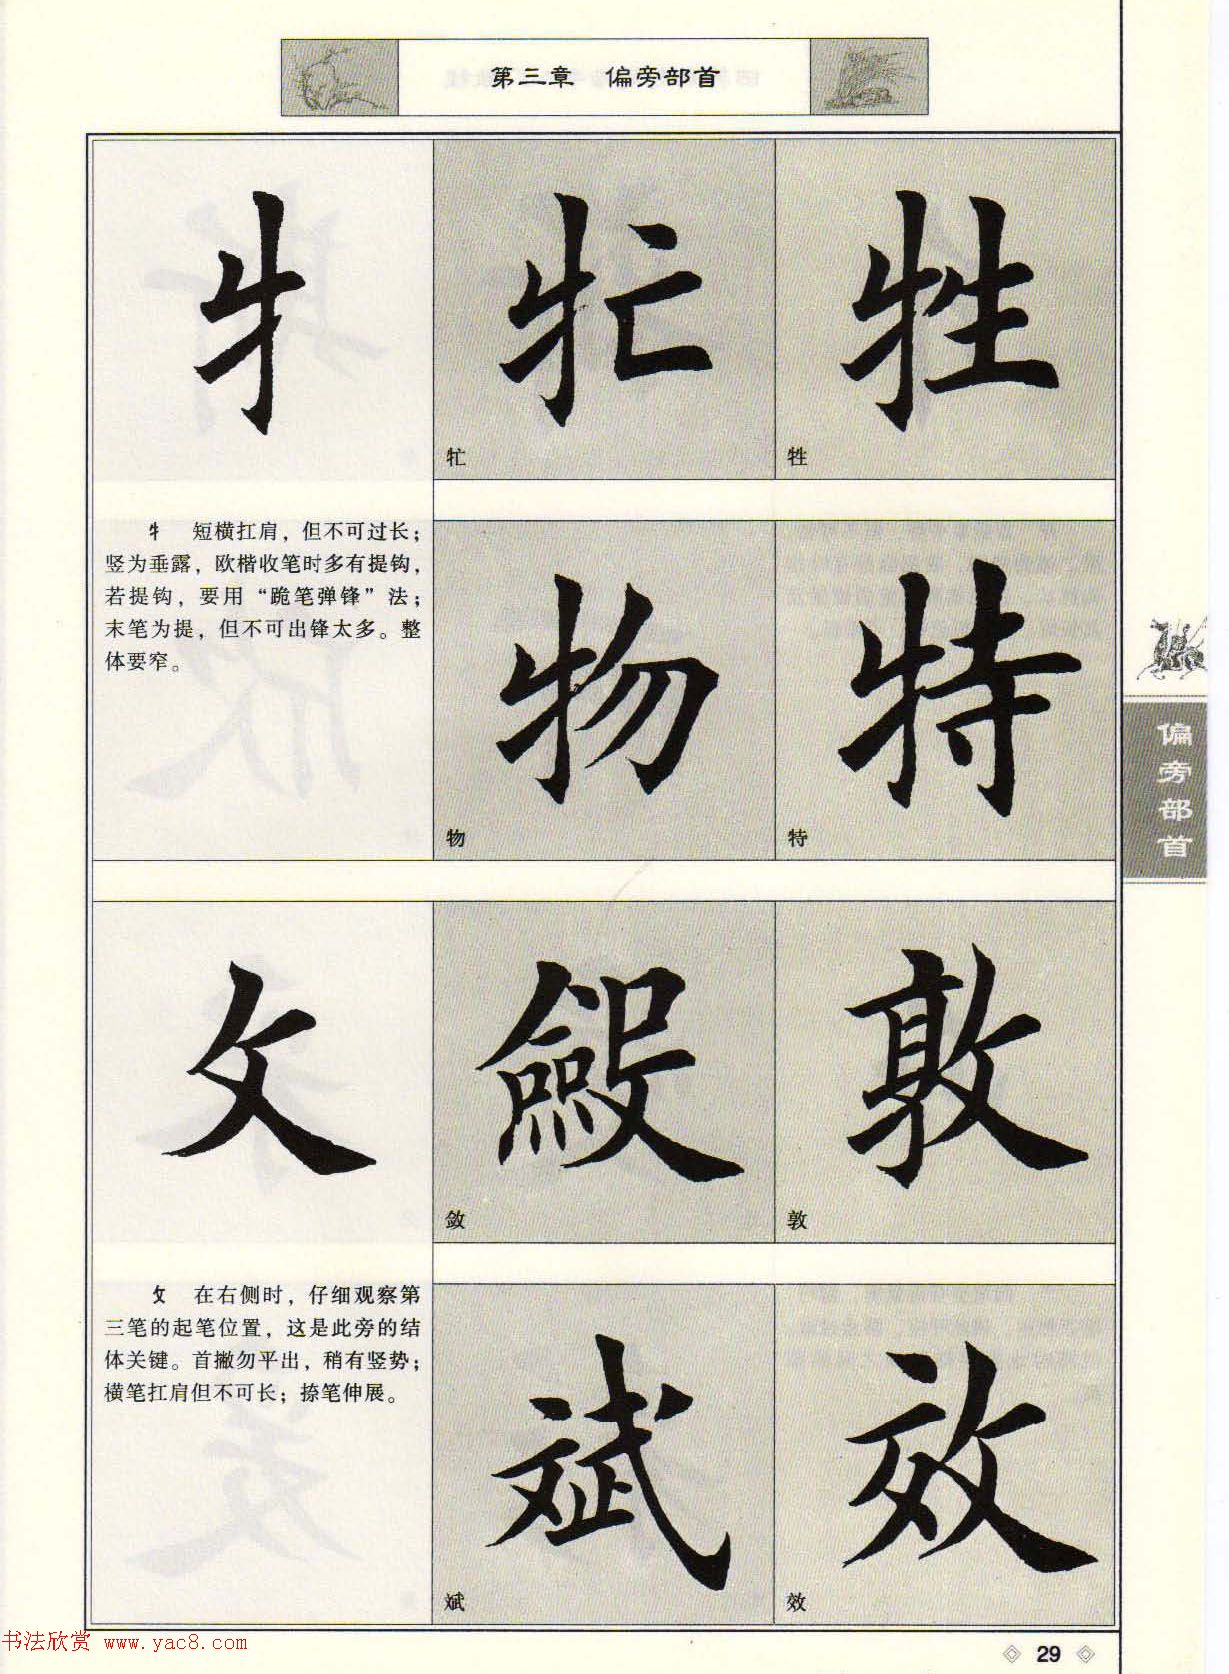 第三章 偏旁部首
牜 牤 牲
牤 牲
牜 短横扛肩，但不可过长；
竖为垂露，欧楷收笔时多有提钩，
若提钩，要用“跪笔弹锋”法；
末笔为提，但不可出锋太多。整
体要窄。
物 特
物 特
偏旁部首
攵 斂 敦
敛 敦
攵 在右侧时，仔细观察第
三笔的起笔位置，这是此旁的结
体关键。首撇勿平出，稍有竖势；
横笔扛肩但不可长；捺笔伸展。
斌 效
斌 效
书法欣赏 www.yac8.com
29